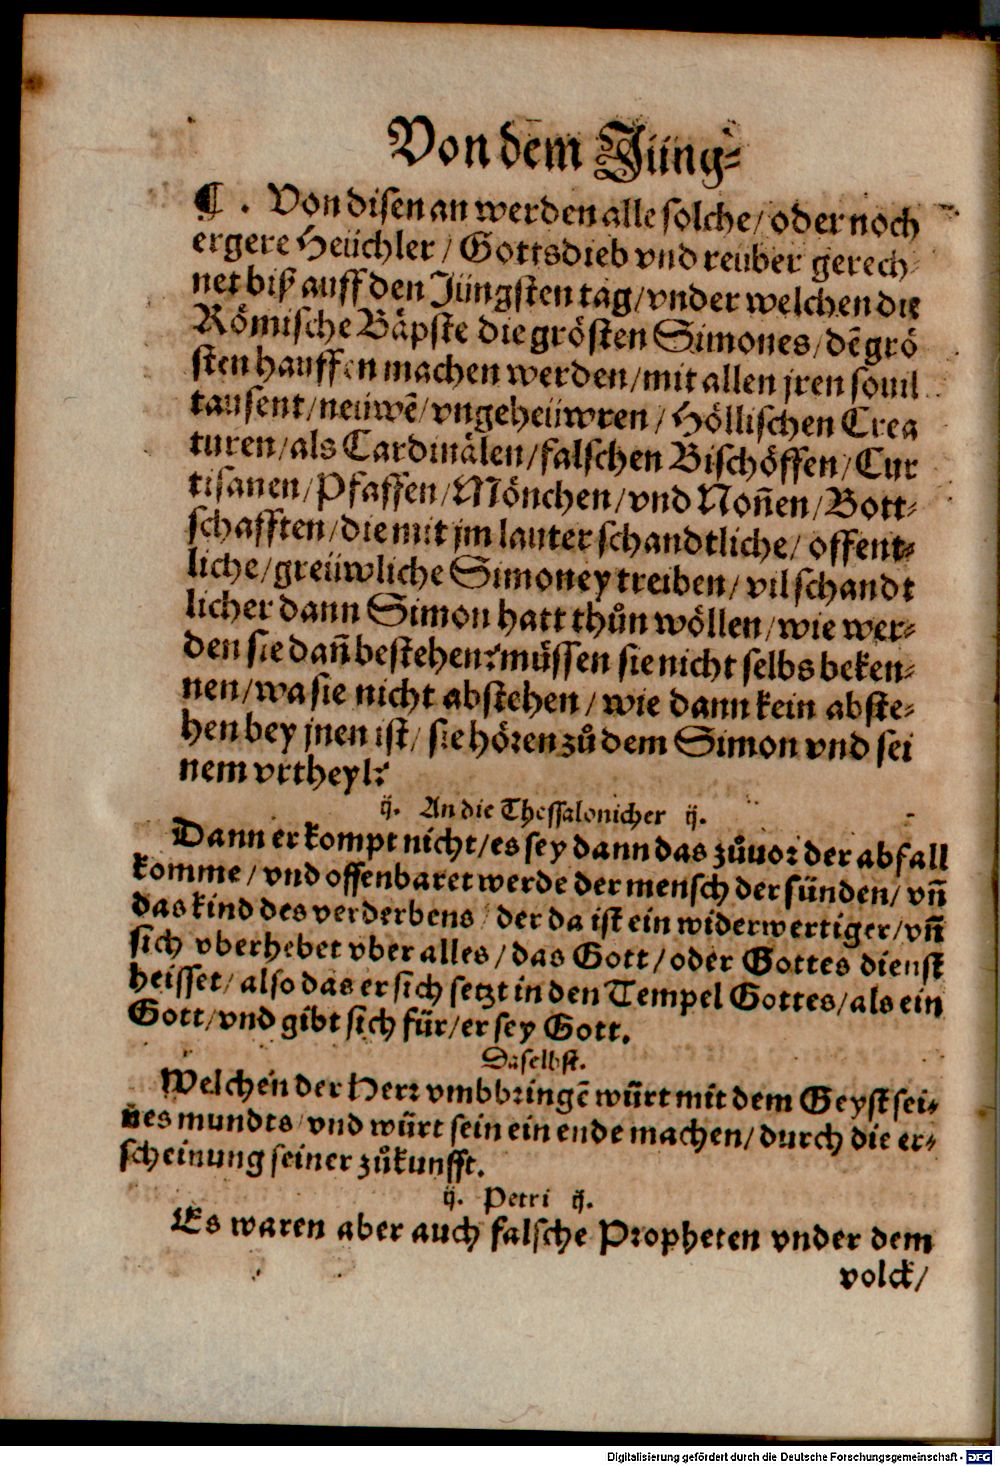 Von dem Jüng-
¶. Von disen an werden alle solche/ oder noch
ergere Heüchler/ Gottsdieb vnd reuber gerech
net biß auff den Jüngsten tag/ vnder welchen die
Römische Bäpste die grösten Simones/ dē grö
sten hauffen machen werden/ mit allen jren souil
tausent/ neüwē/ vngeheüwren/ Höllischen Crea
turen/ als Cardinälen/ falschen Bischöffen/ Cur
tisanen/ Pfaffen/ Mönchen/ vnd Noñen/ Bott-
schafften/ die mit jm lauter schandtliche/ offent-
liche/ greüwliche Simoney treiben/ vil schandt
licher dann Simon hatt thůn wöllen/ wie wer-
den sie dañ bestehen? müssen sie nicht selbs beken-
nen/ wa sie nicht abstehen/ wie dann kein abste-
hen bey jnen ist/ sie hören zů dem Simon vnd sei
nem vrtheyl?
ij. An die Thessalonicher ij.
Dann er kompt nicht/ es sey dann das zůuor der abfall
komme/ vnd offenbaret werde der mensch der sünden/ vñ
das kind des verderbens/ der da ist ein widerwertiger/ vñ
sich vberhebet vber alles/ das Gott/ oder Gottes dienst
heisset/ also das er sich setzt in den Tempel Gottes/ als ein
Gott/ vnd gibt sich für/ er sey Gott.
Daselbst.
Welchen der Herr vmbbringē würt mit dem Geyst sei-
nes mundts/ vnd würt sein ein ende machen/ durch die er-
scheinung seiner zůkunfft.
ij. Petri ij.
Es waren aber auch falsche Propheten vnder dem
volck/
Digitalisierung gefördert durch die Deutsche Forschungsgemeinschaft - DFG